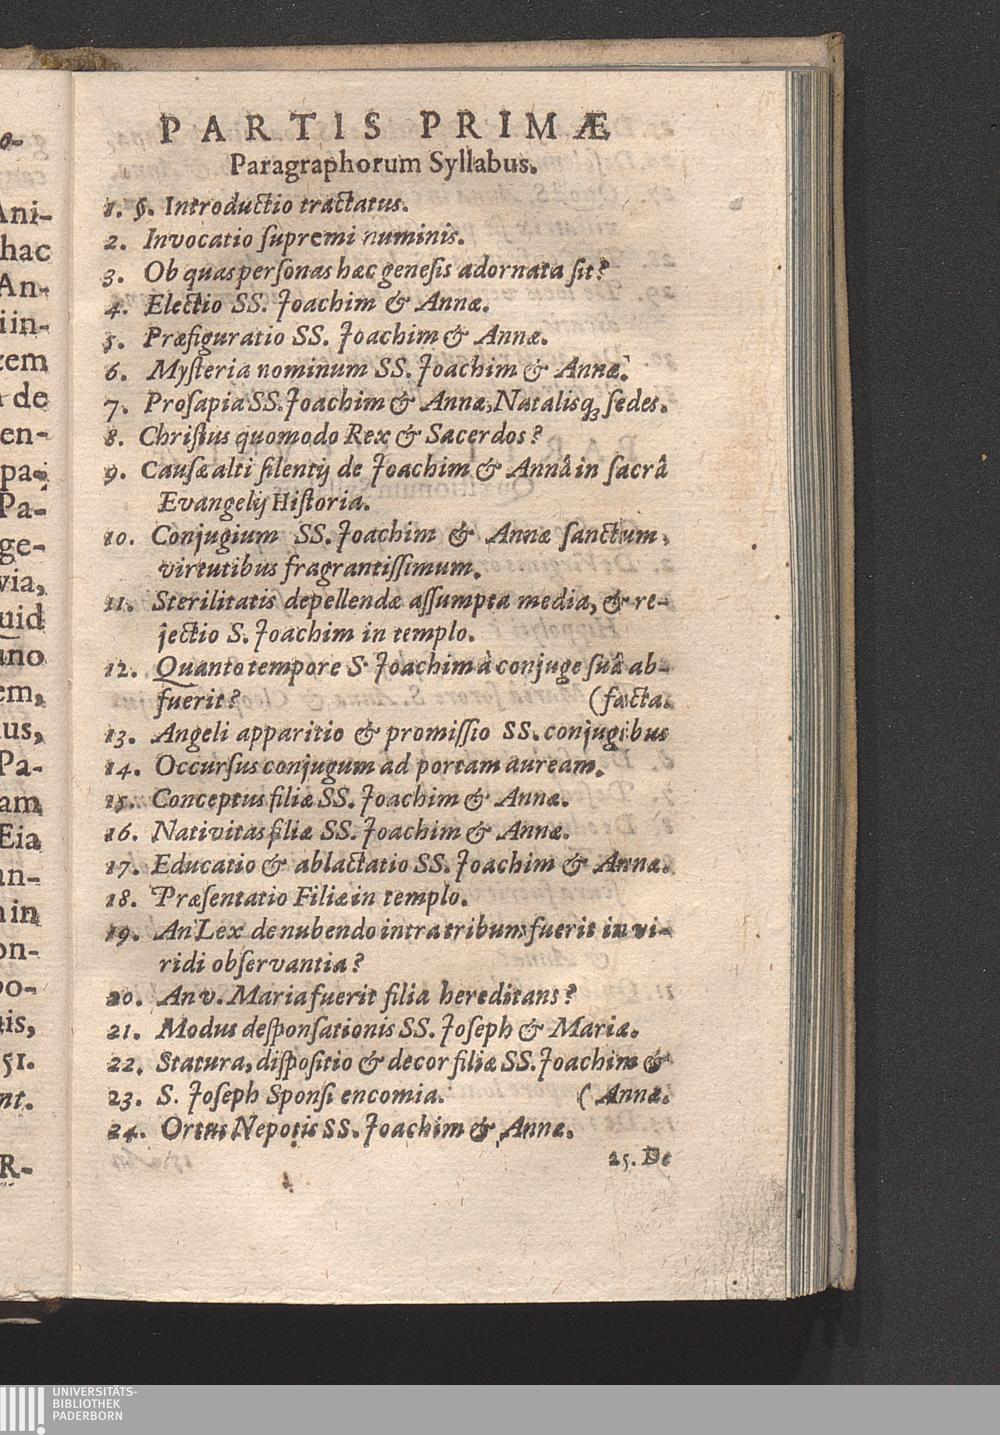 PARTIS PRIMÆ
Paragraphorum Syllabus.
1. §. Introductio tractatus.
2. Invocatio ſupremi numinis.
3. Ob quas perſonas hæc geneſis adornata ſit?
4. Electio SS. Joachim & Annæ.
5. Præfiguratio SS. Joachim & Annæ.
6. Myſteria nominum SS. Joachim & Annæ.
7. Proſapia SS. Joachim & Annæ, Natalisq; ſedes.
8. Chriſtus quomodo Rex & Sacerdos?
9. Cauſæ alti ſilentij de Joachim & Annâ in ſacrâ
Evangelij Hiſtoria.
10. Conjugium SS. Joachim & Annæ ſanctum,
virtutibus fragrantiſſimum.
11. Sterilitatis depellendæ aſſumpta media, & re-
jectio S. Joachim in templo.
12. Quanto tempore S. Joachim à conjuge ſuâ ab-
fuerit? (facta.
13. Angeli apparitio & promiſſio SS. conjugibus
14. Occurſus conjugum ad portam auream.
15. Conceptus filiæ SS. Joachim & Annæ.
16. Nativitas filiæ SS. Joachim & Annæ.
17. Educatio & ablactatio SS. Joachim & Annæ.
18. Præſentatio Filiæ in templo.
19. An Lex de nubendo intra tribum fuerit in vi-
ridi obſervantia?
20. An v. Maria fuerit filia hereditans?
21. Modus deſponſationis SS. Joſeph & Mariæ.
22. Statura, diſpoſitio & decor filiæ SS. Joachim &
23. S. Joſeph Sponſi encomia. (Annæ.
24. Ortus Nepotis SS. Joachim & Annæ.
25. De
o-
Ani-
hac
An-
iin-
cem
de
en-
pa-
Pa-
ge-
via,
uid
uno
em,
us,
Pa-
am
Eia
an-
in
on-
oo-
tis,
51.
nt.
R-
UNIVERSITÄTS-
BIBLIOTHEK
PADERBORN